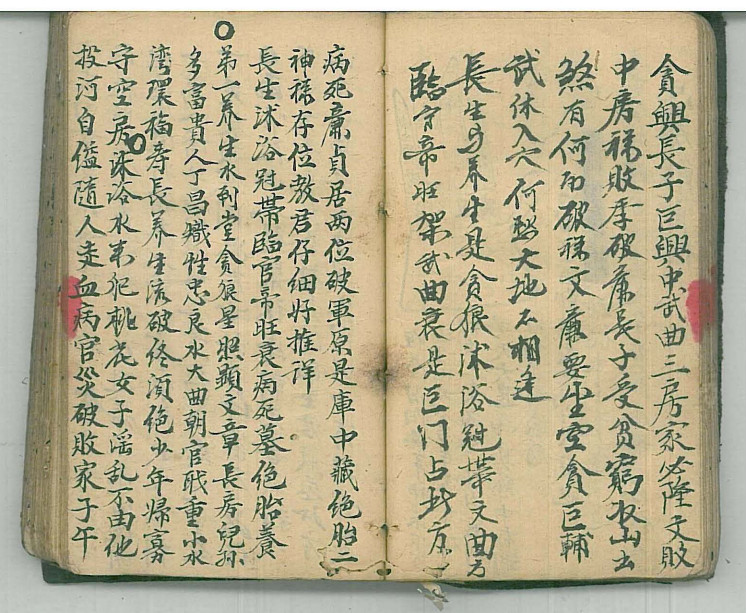 貪興長子巨興中武曲三房家必隆文敗
中房祿敗季破廉長子受貧窮水山出
煞有何而破祿文廉要坐空貪巨輔
武休入穴何愁大地不相逢
長生與養生是貪狼沐浴冠帶文曲方
臨官帝旺架武曲衰是巨门占此方
病死廉貞居两位破軍原是庫中藏絕胎二
神祿存位教君仔細好推详
長生沐浴冠帶臨官帝旺衰病死墓絕胎養
第一养生水到堂貪狼星照顯文章長房兒孫
多富貴人丁昌熾性忠良水大曲朝官职重小水
湾環福寿長养生流破終須绝少年归寡
守空房沐浴水来犯桃花女子淫乱不由他
投河自缢隨人走血病官災破敗家子午